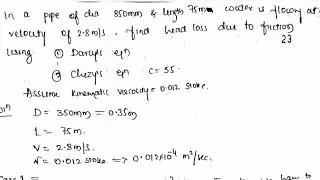 In a pipe of dia 350mm & length 75m water is flowing at
velocity of 2.8m/s. find head loss due to friction
23
using ① Darcy's eqn
② Chezy's eqn C=55
Assume kinematic viscosity = 0.012 stoke.
D = 350mm = 0.35m
L = 75m.
V = 2.8m/s.
ν = 0.012 stoke => 0.012x10⁻⁴ m²/sec.